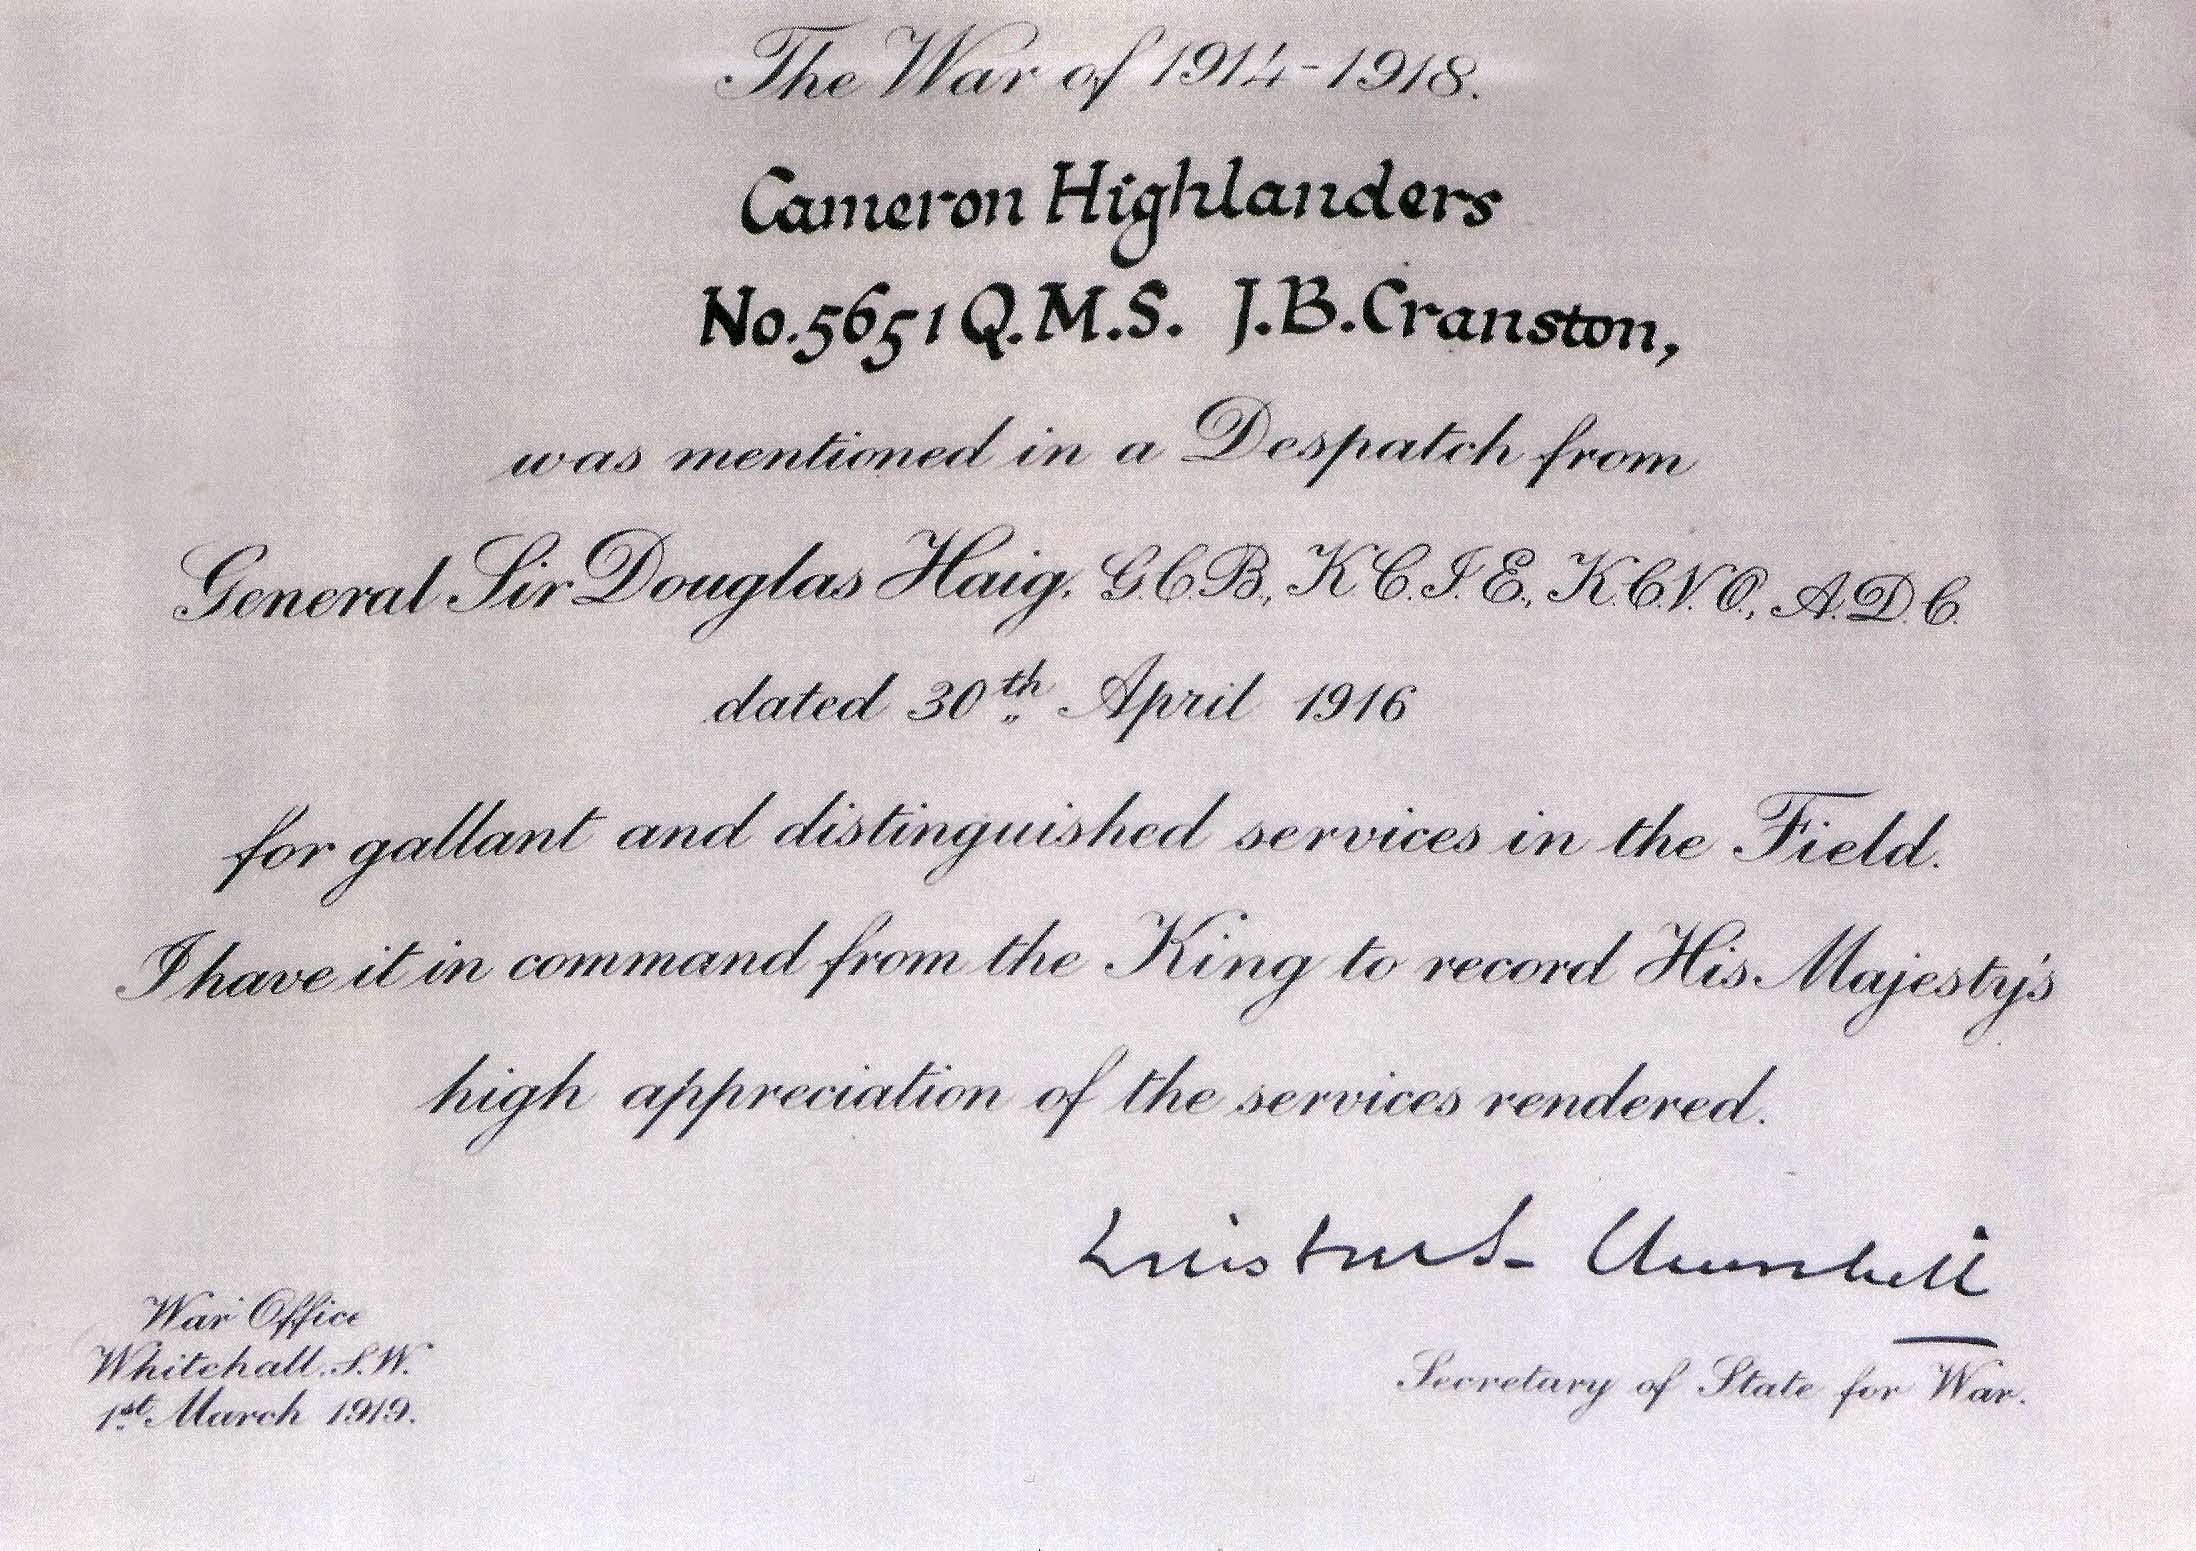 The War of 1914-1918.
Cameron Highlanders
No. 5651 Q.M.S. J.B. Cranston,
was mentioned in a Despatch from
General Sir Douglas Haig, G.C.B., K.C.I.E., K.C.V.O., A.D.C.
dated 30th April 1916
for gallant and distinguished services in the Field.
I have it in command from the King to record His Majesty's
high appreciation of the services rendered.
Winston S. Churchill
Secretary of State for War.
War Office
Whitehall, S.W.
1st March 1919.